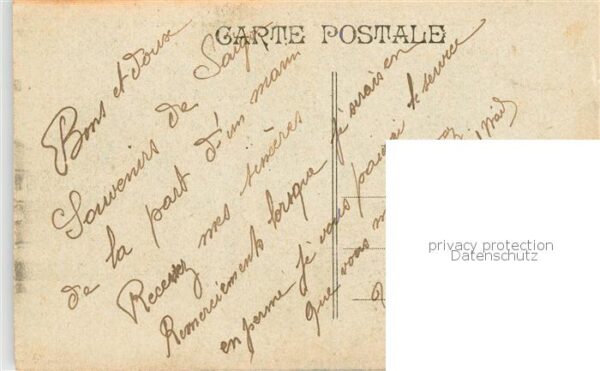 CARTE POSTALE
Bons et doux
Souvenirs de
de la part d'un marin
Recevez mes sincères
Remerciements lorsque je serais en
en perme je vous paierai le service
que vous m
privacy protection
Datenschutz